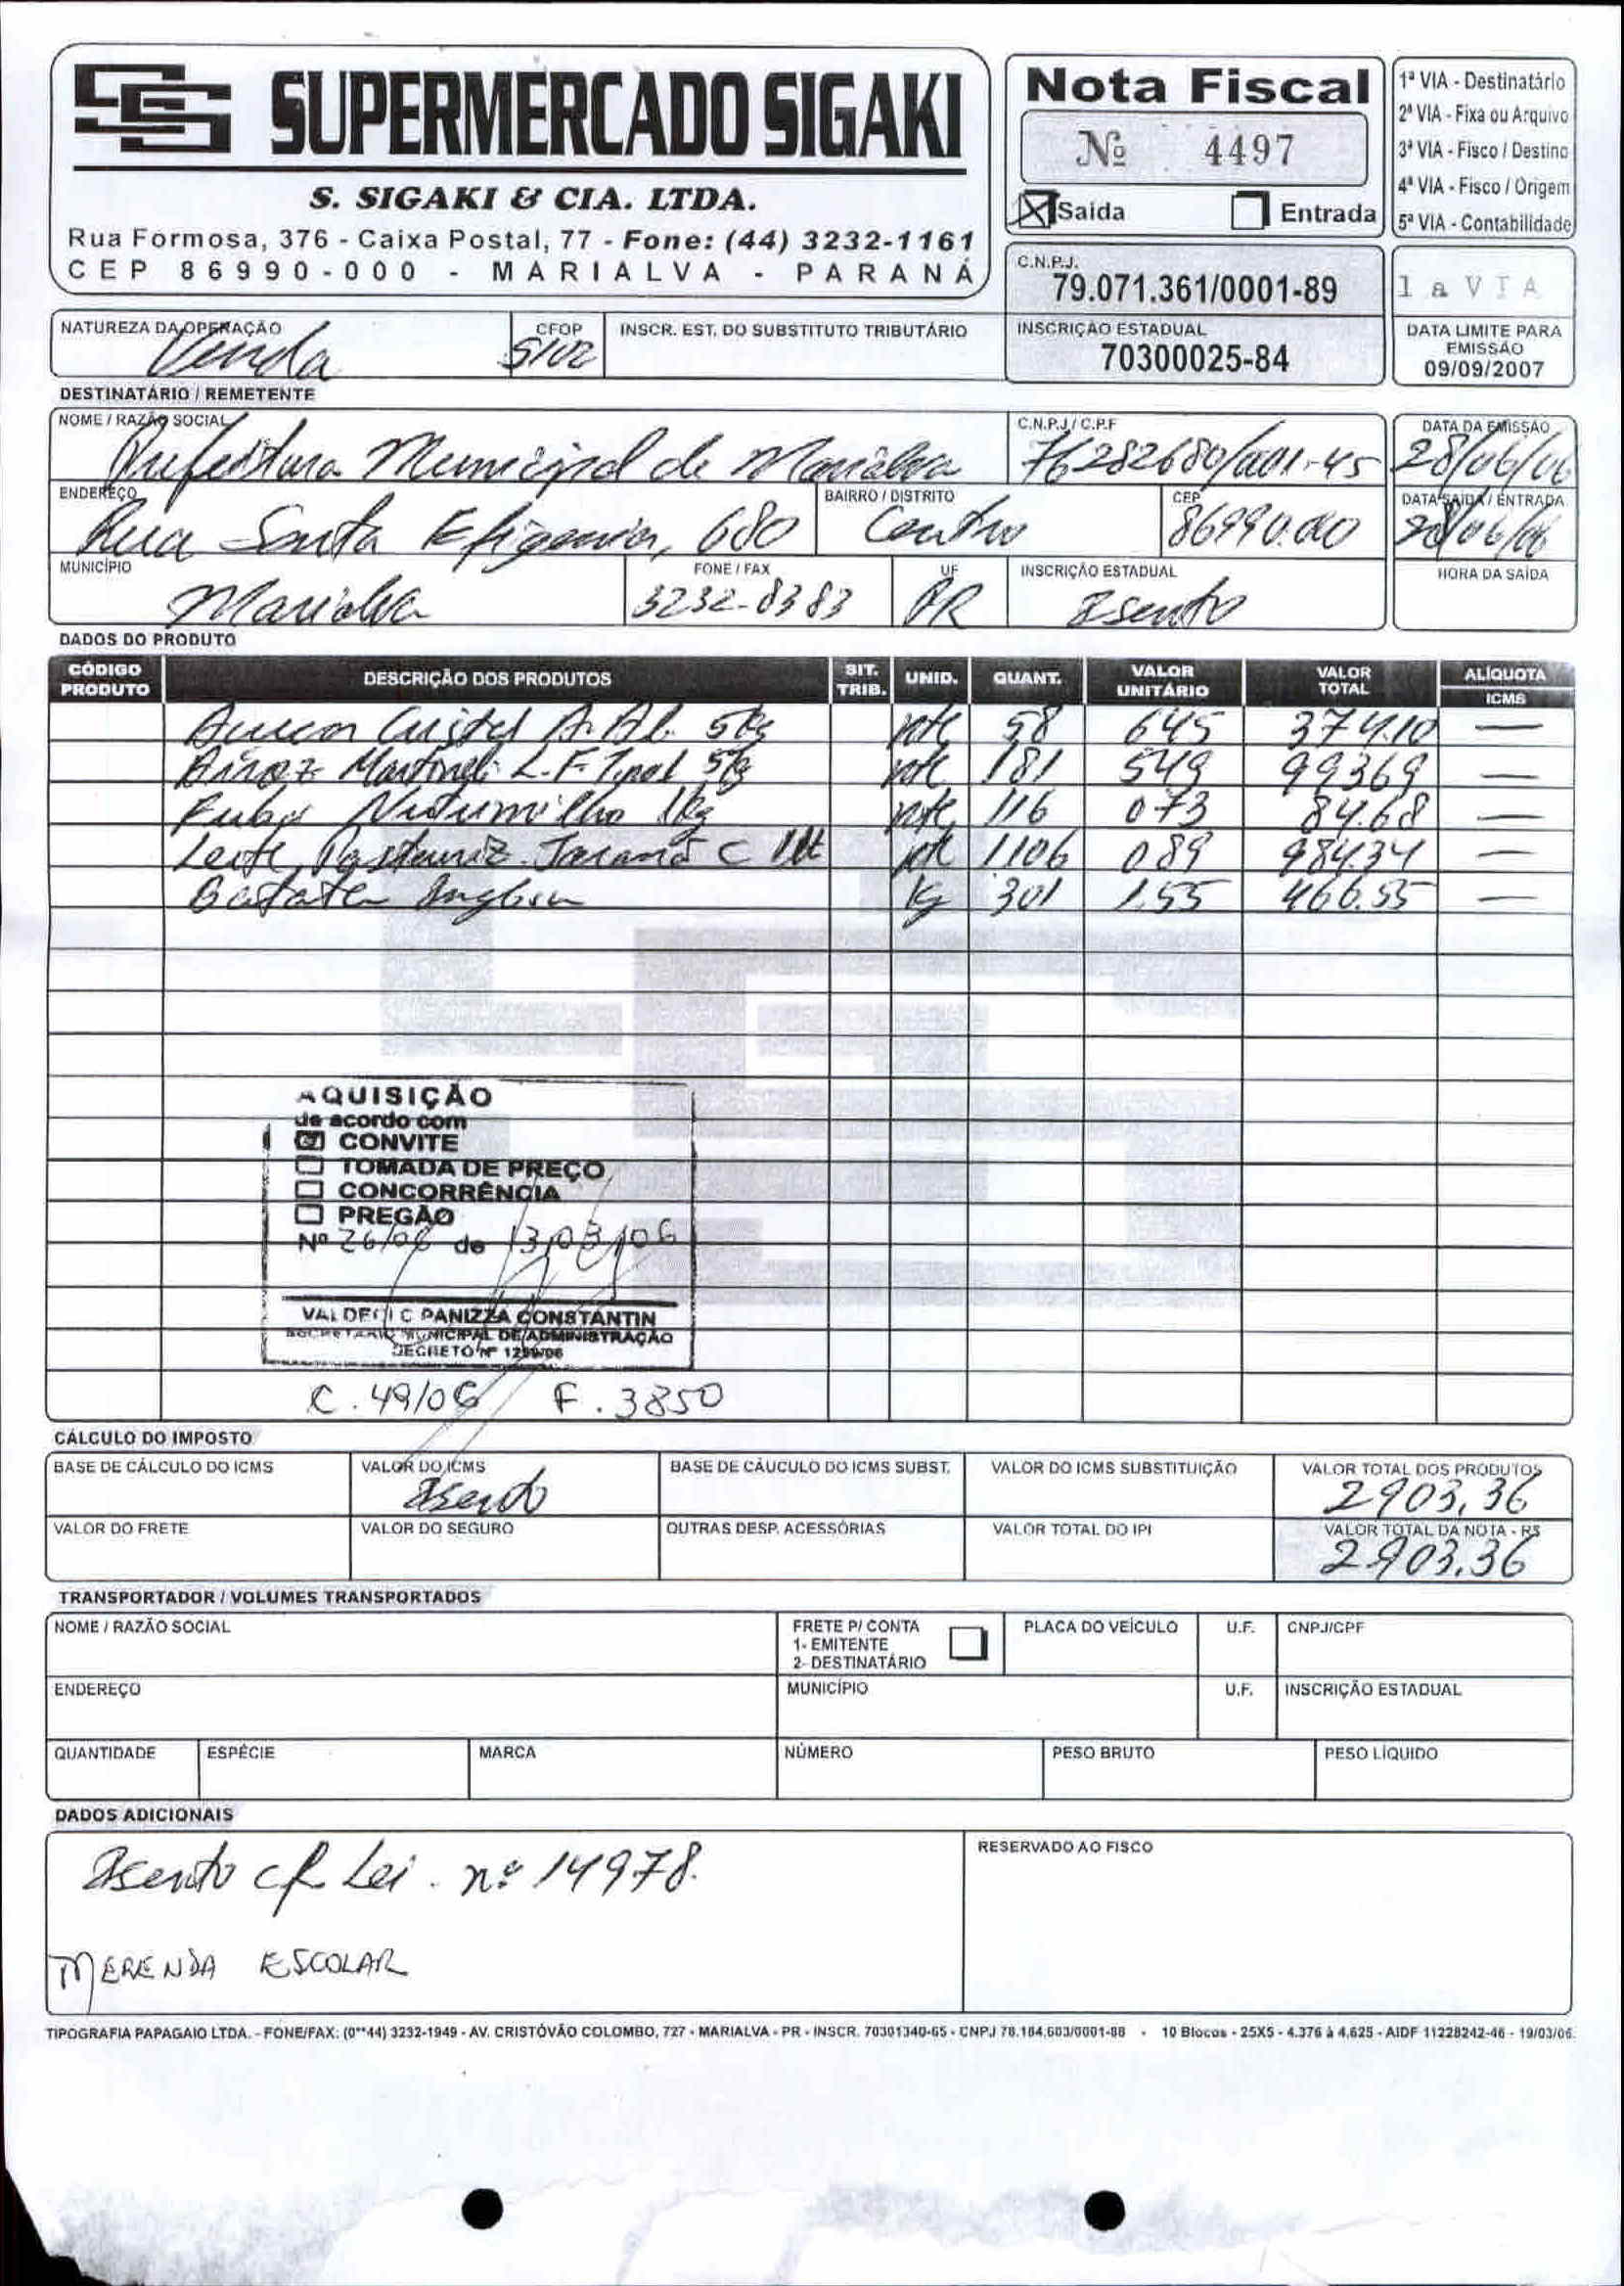 SS SUPERMERCADO SIGAKI
S. SIGAKI & CIA. LTDA.
Rua Formosa, 376 - Caixa Postal, 77 - Fone: (44) 3232-1161
CEP 86990-000 - MARIALVA - PARANÁ
Nota Fiscal
Nº 4497
Saída Entrada
1ª VIA - Destinatário
2ª VIA - Fixa ou Arquivo
3ª VIA - Fisco / Destino
4ª VIA - Fisco / Origem
5ª VIA - Contabilidade
C.N.P.J.
79.071.361/0001-89
1a VIA
NATUREZA DA OPERAÇÃO
Venda
CFOP
5102
INSCR. EST. DO SUBSTITUTO TRIBUTÁRIO
INSCRIÇÃO ESTADUAL
70300025-84
DATA LIMITE PARA
EMISSÃO
09/09/2007
DESTINATÁRIO / REMETENTE
NOME / RAZÃO SOCIAL
Prefeitura Municipal de Marialva
C.N.P.J / C.P.F
76282680/001-45
DATA DA EMISSÃO
28/06/06
ENDEREÇO
Rua Santa Efigenia, 680
BAIRRO / DISTRITO
Centro
CEP
86990.000
DATA SAÍDA / ENTRADA
28/06/06
MUNICÍPIO
Marialva
FONE / FAX
3232-8383
UF
PR
INSCRIÇÃO ESTADUAL
Isento
HORA DA SAÍDA
DADOS DO PRODUTO
CÓDIGO PRODUTO DESCRIÇÃO DOS PRODUTOS SIT. TRIB. UNID. QUANT. VALOR UNITÁRIO VALOR TOTAL ALÍQUOTA ICMS
Cristal 5kg 58 645 374.10 —
Arroz 5kg 181 549 99369 —
Fuba Nutrimilho 1kg 116 073 84.68 —
Leite Pasteuriz. C 1lt 1106 089 984.34 —
Batata Inglesa kg 301 1.55 466.55 —
AQUISIÇÃO
de acordo com
CONVITE
TOMADA DE PREÇO
CONCORRÊNCIA
PREGÃO
Nº 26/06 de 13/03/06
PANIZZA CONSTANTIN
SECRETARIO MUNICIPAL DE ADMINISTRAÇÃO
DECRETO Nº
C. 49/06 F. 3850
CÁLCULO DO IMPOSTO
BASE DE CÁLCULO DO ICMS
VALOR DO ICMS
Isento
BASE DE CÁUCULO DO ICMS SUBST.
VALOR DO ICMS SUBSTITUIÇÃO
VALOR TOTAL DOS PRODUTOS
2903,36
VALOR DO FRETE
VALOR DO SEGURO
OUTRAS DESP. ACESSÓRIAS
VALOR TOTAL DO IPI
VALOR TOTAL DA NOTA - R$
2.903,36
TRANSPORTADOR / VOLUMES TRANSPORTADOS
NOME / RAZÃO SOCIAL
FRETE P/ CONTA
1- EMITENTE
2- DESTINATÁRIO
PLACA DO VEÍCULO
U.F.
CNPJ/CPF
ENDEREÇO
MUNICÍPIO
U.F.
INSCRIÇÃO ESTADUAL
QUANTIDADE
ESPÉCIE
MARCA
NÚMERO
PESO BRUTO
PESO LÍQUIDO
DADOS ADICIONAIS
Isento cf. Lei. nº 14978.
MERENDA ESCOLAR
RESERVADO AO FISCO
TIPOGRAFIA PAPAGAIO LTDA. - FONE/FAX: (0**44) 3232-1949 - AV. CRISTÓVÃO COLOMBO, 727 - MARIALVA - PR - INSCR. 70301340-65 - CNPJ 78.184.603/0001-88 - 10 Blocos - 25X5 - 4.376 à 4.625 - AIDF 11228242-46 - 19/03/06.